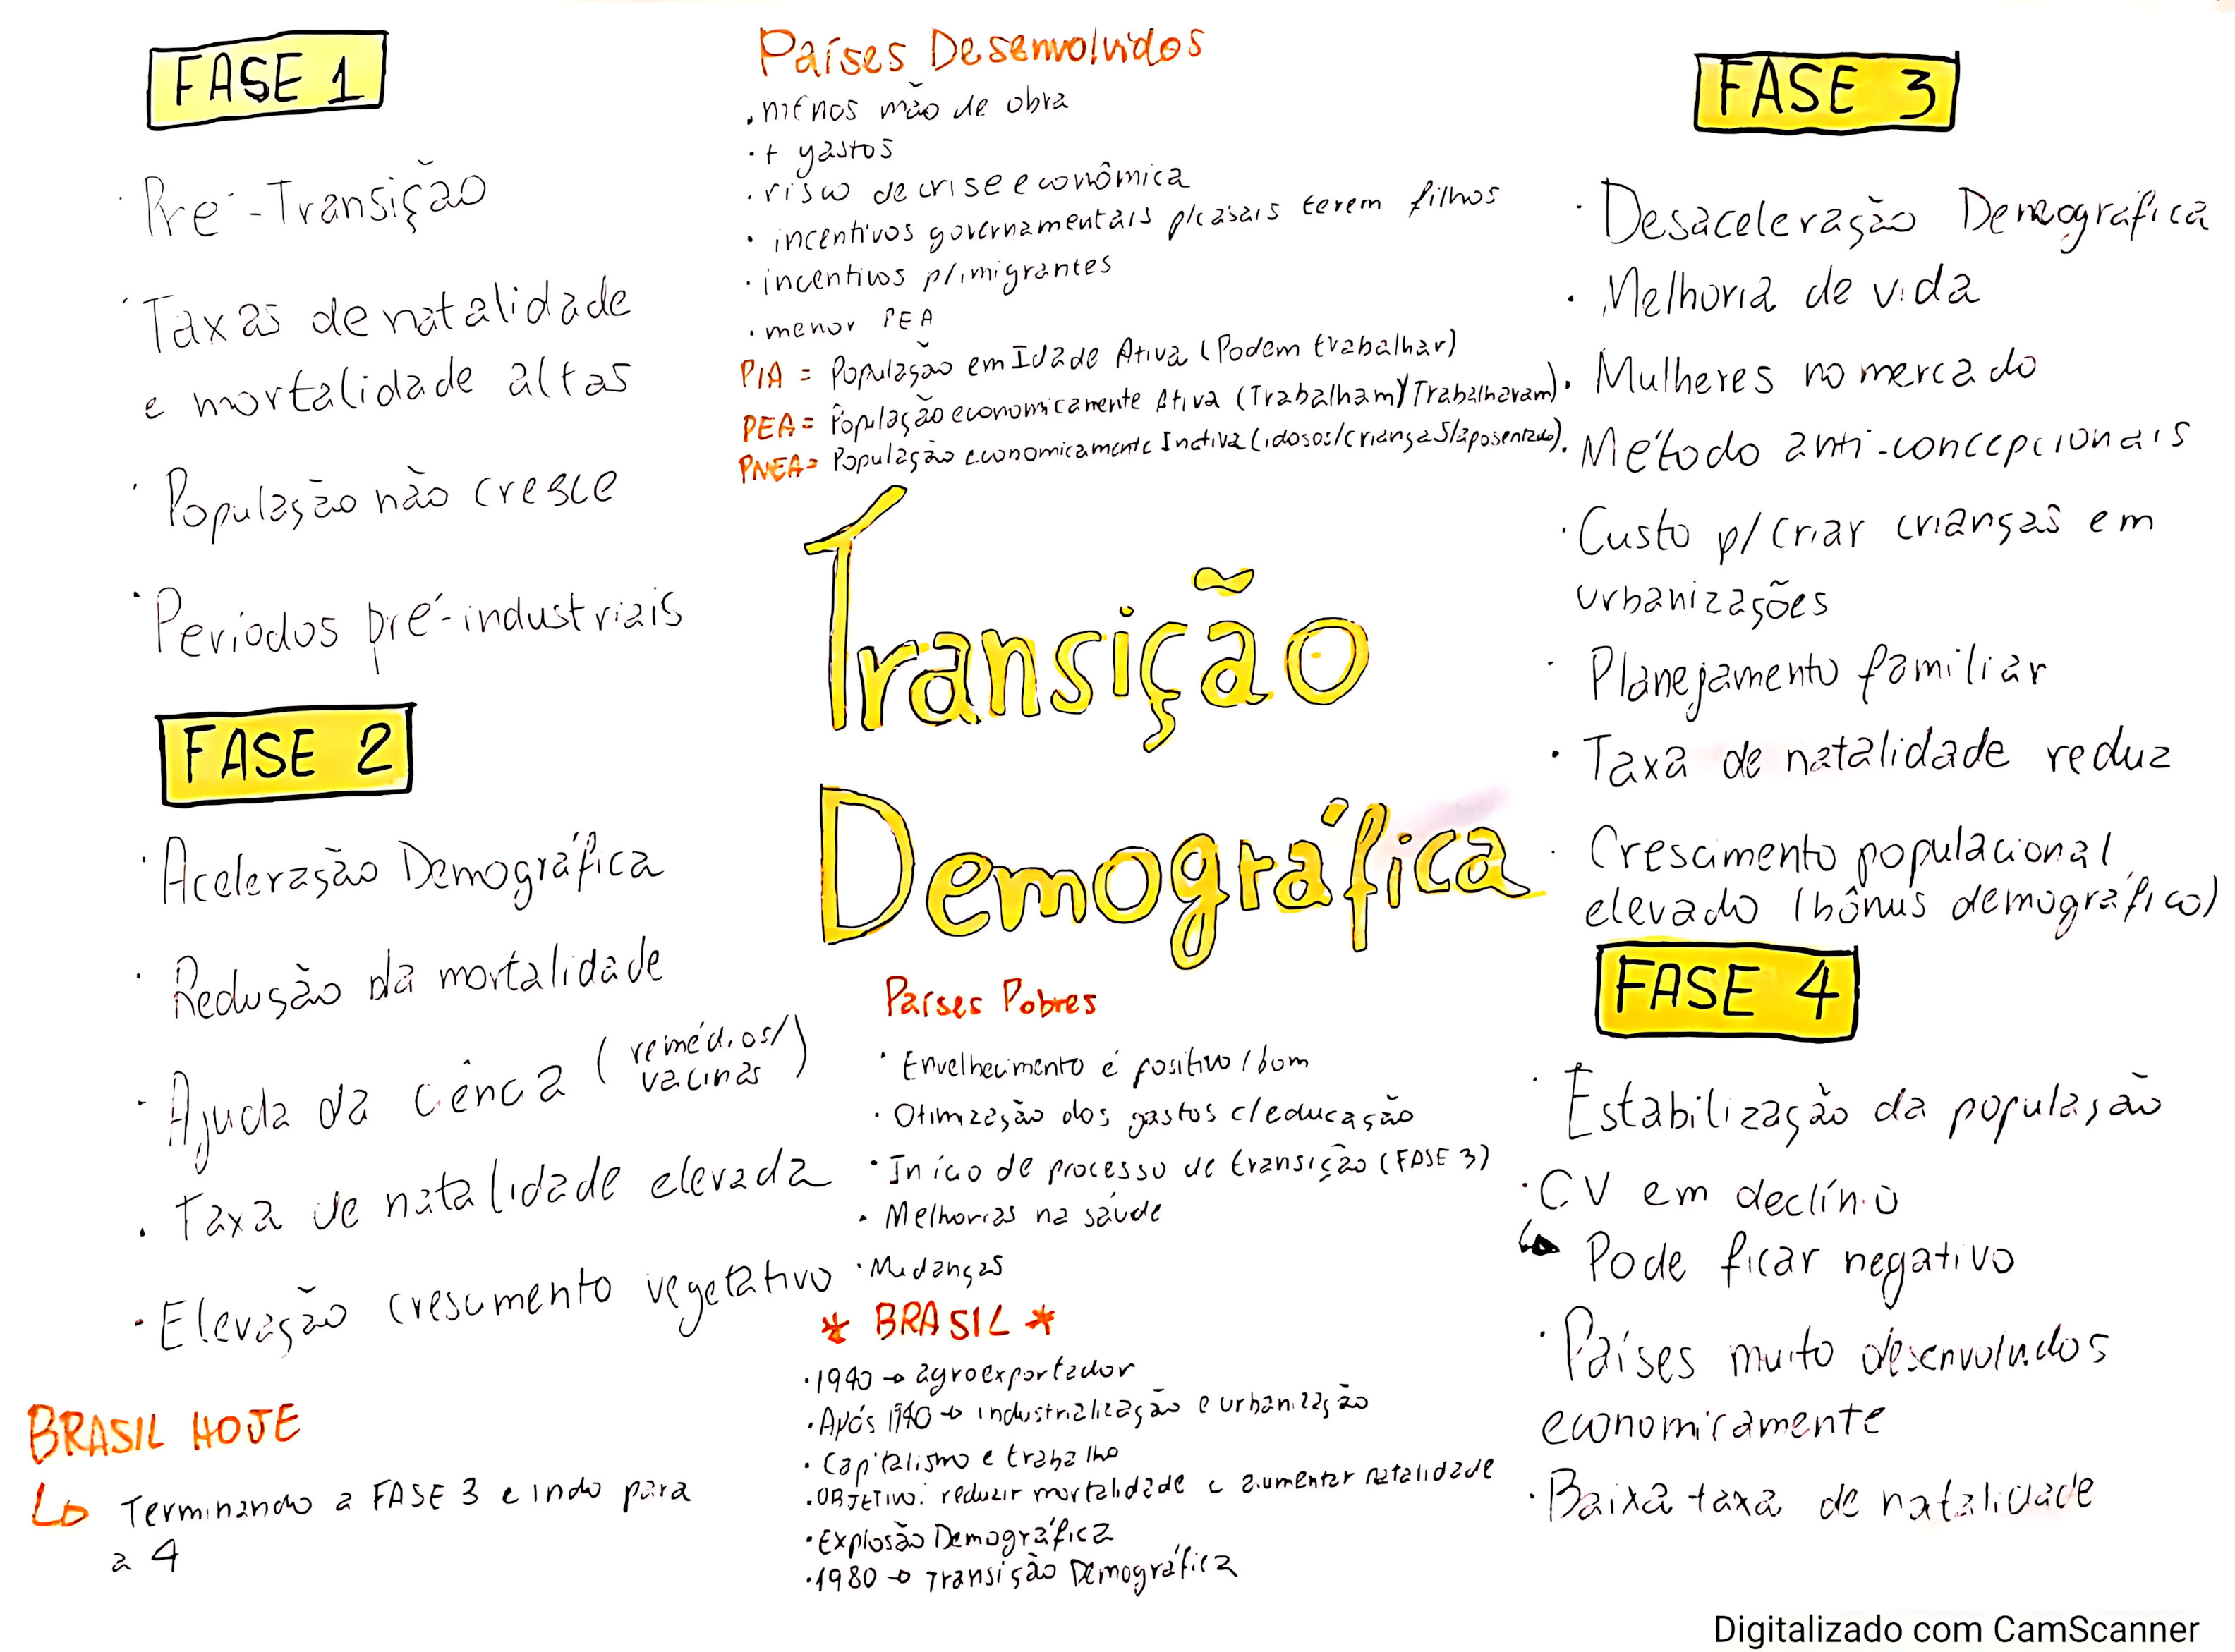 FASE 1
· Pré-Transição
· Taxas de natalidade
e mortalidade altas
· População não cresce
· Períodos pré-industriais
FASE 2
· Aceleração Demográfica
· Redução da mortalidade
· Ajuda da ciência (remédios/
vacinas)
· Taxa de natalidade elevada
· Elevação crescimento vegetativo
BRASIL HOJE
↳ Terminando a FASE 3 e indo para
a 4
Países Desenvolvidos
· menos mão de obra
· + gastos
· risco de crise econômica
· incentivos governamentais p/casais terem filhos
· incentivos p/imigrantes
· menor PEA
PIA = População em Idade Ativa (Podem trabalhar)
PEA = População economicamente Ativa (Trabalham)/Trabalhavam)
PNEA= População economicamente Inativa (idosos/crianças/aposentado)
Transição
Demográfica
Países Pobres
· Envelhecimento é positivo/bom
· Otimização dos gastos c/educação
· Início de processo de transição (FASE 3)
· Melhorias na saúde
· Mudanças
* BRASIL *
· 1940 → agroexportador
· Após 1940 → industrialização e urbanização
· Capitalismo e trabalho
· OBJETIVO: reduzir mortalidade e aumentar natalidade
· Explosão Demográfica
· 1980 → Transição Demográfica
FASE 3
· Desaceleração Demografica
· Melhoria de vida
· Mulheres no mercado
· Método anti-concepcionais
· Custo p/criar crianças em
urbanizações
· Planejamento familiar
· Taxa de natalidade reduz
· Crescimento populacional
elevado (bônus demográfico)
FASE 4
· Estabilização da população
· CV em declínio
↳ Pode ficar negativo
· Países muito desenvolvidos
economicamente
· Baixa taxa de natalidade
Digitalizado com CamScanner